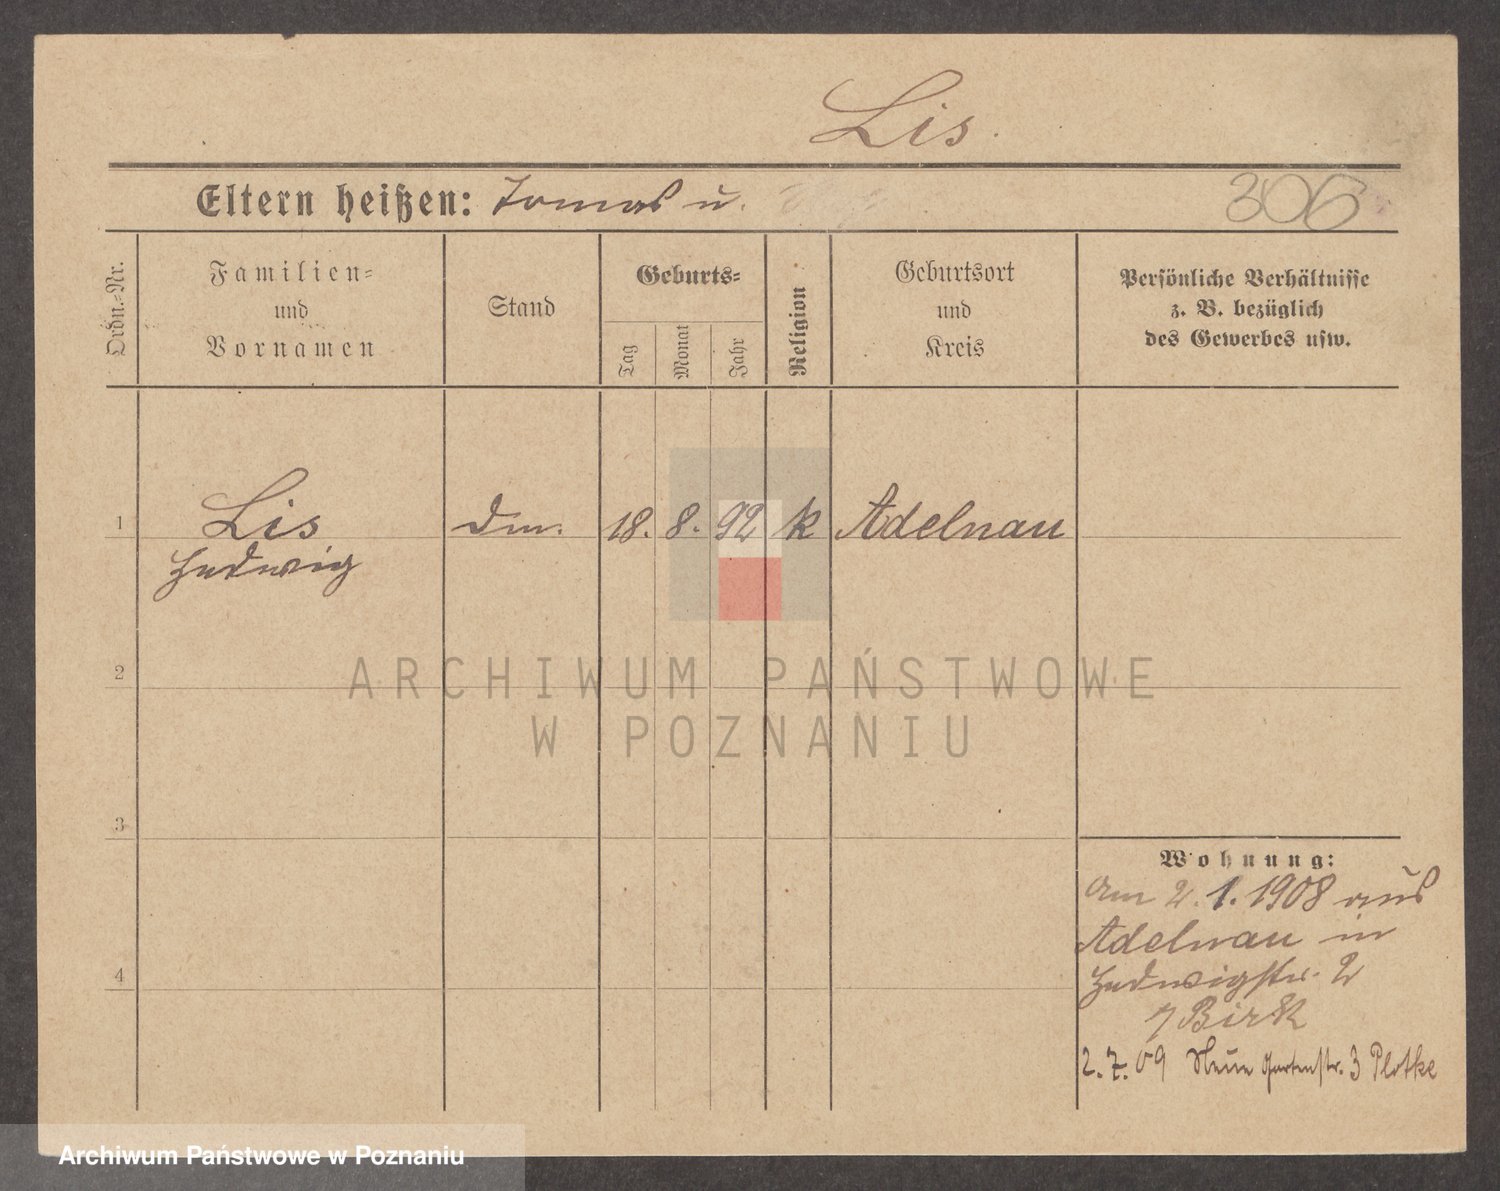 Lis.
Eltern heißen: Tomas u.
306
Ordn.-Nr.
Familien-
und
Vornamen
Stand
Geburts-
Tag
Monat
Jahr
Religion
Geburtsort
und
Kreis
Persönliche Verhältnisse
z. B. bezüglich
des Gewerbes usw.
1 Lis Dm. 18. 8. 92 k Adelnau
Hedwig
2
ARCHIWUM PAŃSTWOWE
W POZNANIU
3
Wohnung:
Am 2. 1. 1908 aus
Adelnau in
4
Hedwigstr. 2
Birk
2. 7. 09 Neue Gartenstr. 3 Plotke
Archiwum Państwowe w Poznaniu